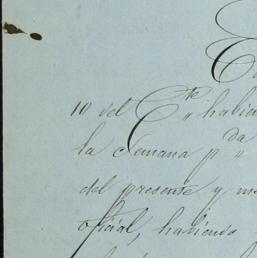 10 del Cte habie
la Semana pda
del presente y m
oficial, habiendo